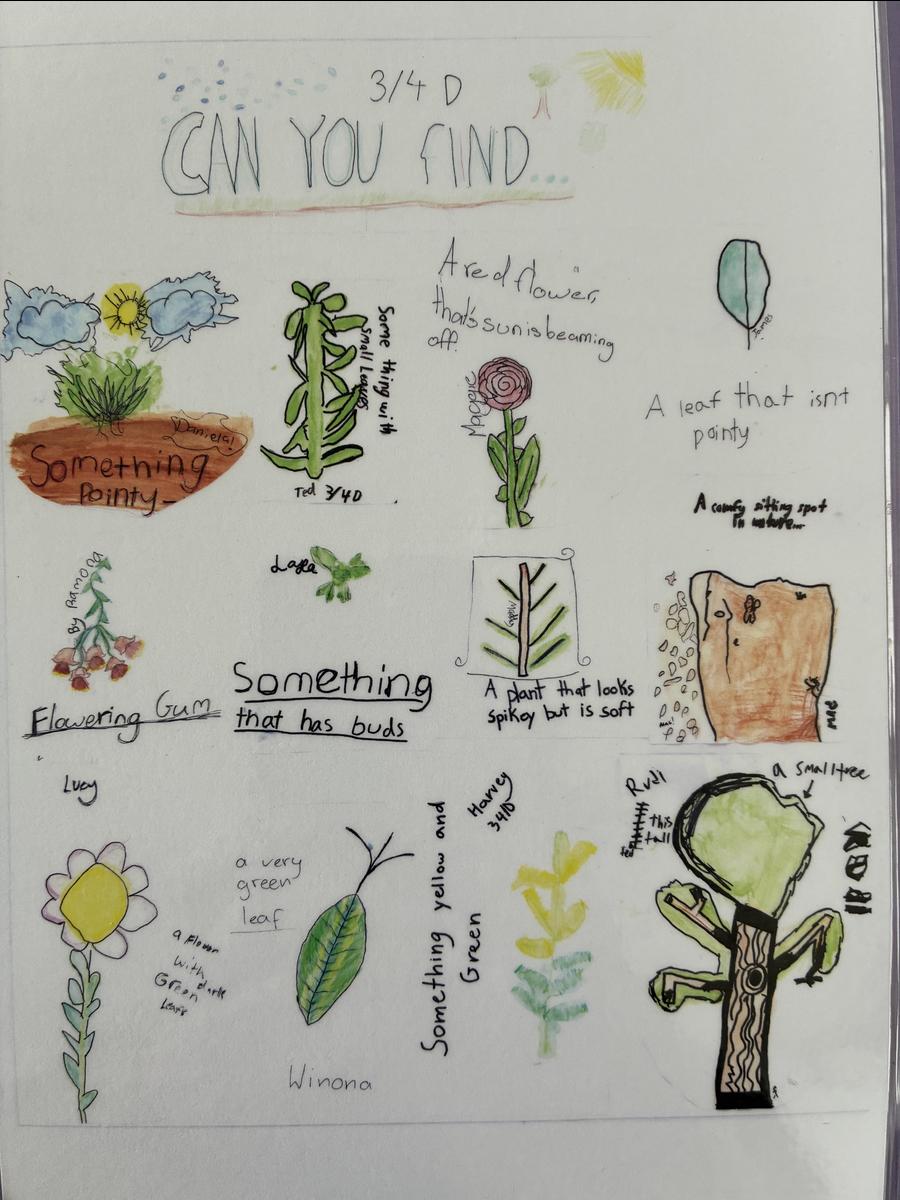 3/4 D
CAN YOU FIND...
Daniela!
Something
Pointy-
Some thing with
small Leaves
Ted 3/4D
A red flower,
that's sun is beaming
off.
Maggie
James
A leaf that isnt
pointy
By Ramona
Flowering Gum
Layla
Something
that has buds
A plant that looks
Spikey but is soft
A comfy sitting spot
in nature...
Mae
Lucy
a flower
with dark
Green
a very
green
leaf
Winona
Something yellow and
Green
Harvey
3/4D
Rudi
this
tall
a small tree